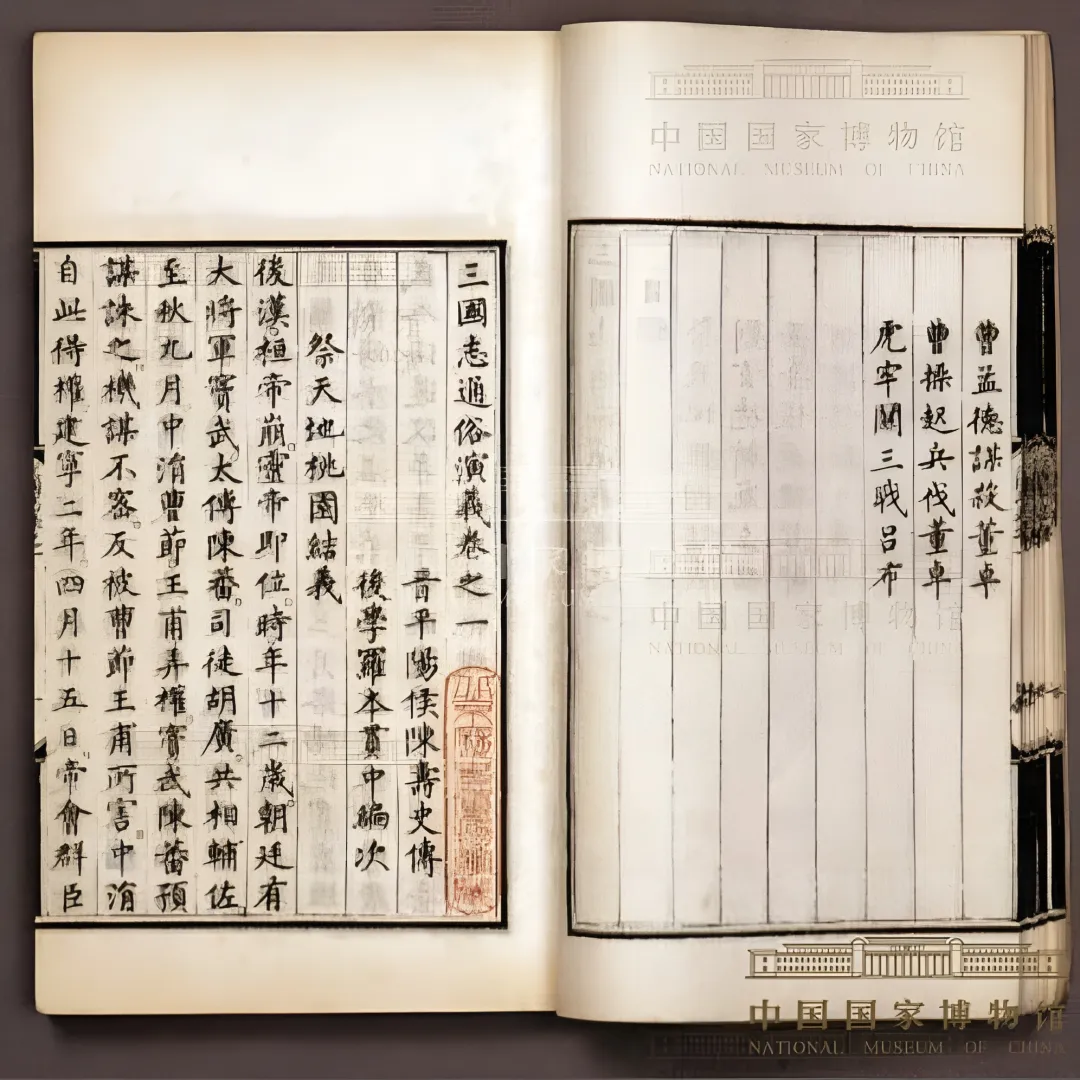 曹孟德謀殺董卓
曹操起兵伐董卓
虎牢關三戰呂布
三國志通俗演義卷之一
晉平陽侯陳壽史傳
後學羅本貫中編次
祭天地桃園結義
後漢桓帝崩靈帝即位時年十二歲朝廷有
大將軍竇武太傅陳蕃司徒胡廣共相輔佐
至秋九月中涓曹節王甫弄權竇武陳蕃預
謀誅之機謀不密反被曹節王甫所害中涓
自此得權建寧二年四月十五日帝會群臣
中国国家博物馆
NATIONAL MUSEUM OF CHINA
中国国家博物馆
NATIONAL MUSEUM OF CHINA
中国国家博物馆
NATIONAL MUSEUM OF CHINA